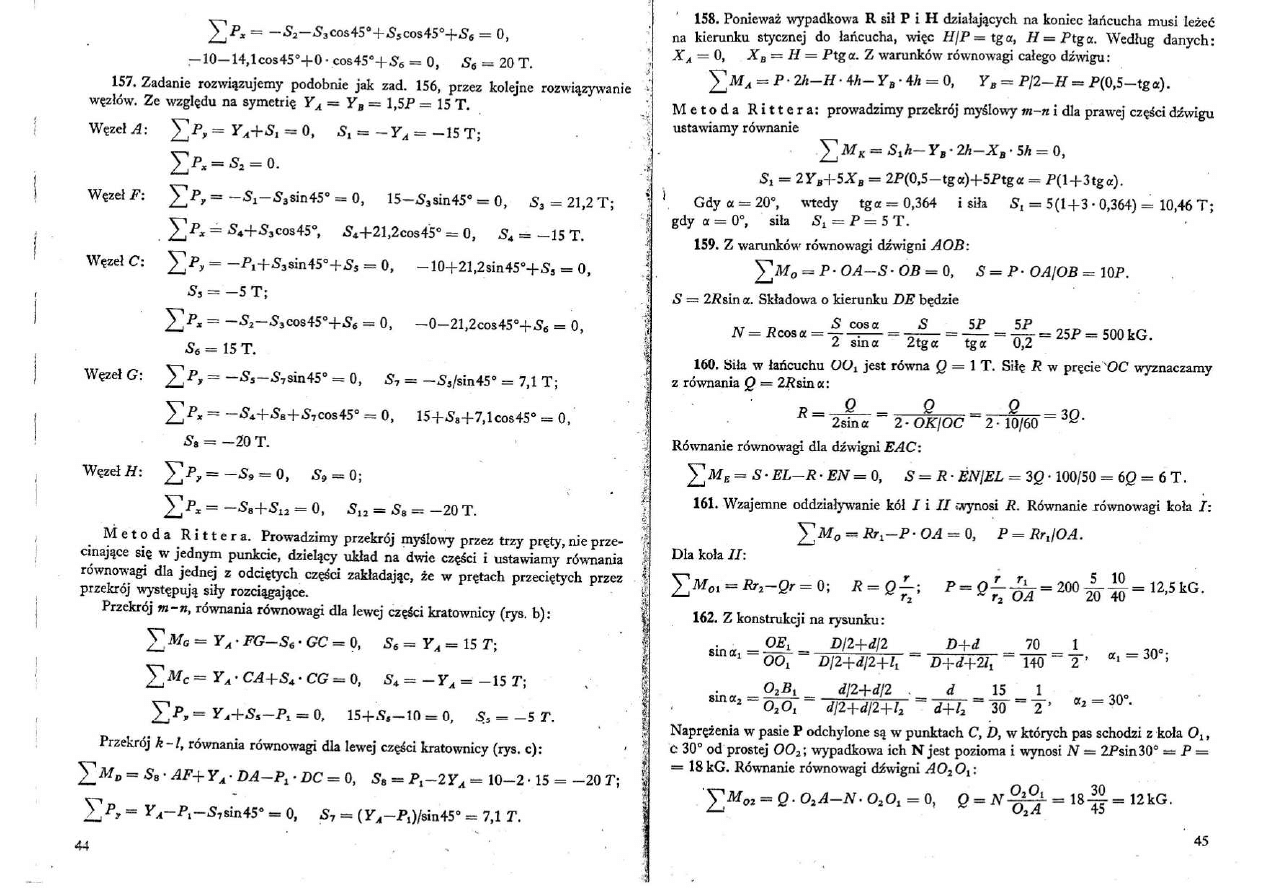 ∑Pₓ = —S₂—S₃cos45°+S₅cos45°+S₆ = 0,
—10—14,1cos45°+0 · cos45°+S₆ = 0, S₆ = 20 T.
157. Zadanie rozwiązujemy podobnie jak zad. 156, przez kolejne rozwiązywanie
węzłów. Ze względu na symetrię Y_A = Y_B = 1,5P = 15 T.
Węzeł A: ∑P_y = Y_A+S₁ = 0, S₁ = —Y_A = —15 T;
∑Pₓ = S₂ = 0.
Węzeł F: ∑P_y = —S₁—S₃sin45° = 0, 15—S₃sin45° = 0, S₃ = 21,2 T;
∑Pₓ = S₄+S₃cos45°, S₄+21,2cos45° = 0, S₄ = —15 T.
Węzeł C: ∑P_y = —P₁+S₃sin45°+S₅ = 0, —10+21,2sin45°+S₅ = 0,
S₅ = —5 T;
∑Pₓ = —S₂—S₃cos45°+S₆ = 0, —0—21,2cos45°+S₆ = 0,
S₆ = 15 T.
Węzeł G: ∑P_y = —S₅—S₇sin45° = 0, S₇ = —S₅/sin45° = 7,1 T;
∑Pₓ = —S₄+S₈+S₇cos45° = 0, 15+S₈+7,1cos45° = 0,
S₈ = —20 T.
Węzeł H: ∑P_y = —S₉ = 0, S₉ = 0;
∑Pₓ = —S₈+S₁₂ = 0, S₁₂ = S₈ = —20 T.
Metoda Rittera. Prowadzimy przekrój myślowy przez trzy pręty, nie prze-
cinające się w jednym punkcie, dzielący układ na dwie części i ustawiamy równania
równowagi dla jednej z odciętych części zakładając, że w prętach przeciętych przez
przekrój występują siły rozciągające.
Przekrój m-n, równania równowagi dla lewej części kratownicy (rys. b):
∑M_G = Y_A · FG—S₆ · GC = 0, S₆ = Y_A = 15 T;
∑M_C = Y_A · CA+S₄ · CG = 0, S₄ = —Y_A = —15 T;
∑P_y = Y_A+S₅—P₁ = 0, 15+S₅—10 = 0, S₅ = —5 T.
Przekrój k-l, równania równowagi dla lewej części kratownicy (rys. c):
∑M_D = S₈ · AF+Y_A · DA—P₁ · DC = 0, S₈ = P₁—2Y_A = 10—2 · 15 = —20 T;
∑P_y = Y_A—P₁—S₇sin45° = 0, S₇ = (Y_A—P₁)/sin45° = 7,1 T.
44
158. Ponieważ wypadkowa R sił P i H działających na koniec łańcucha musi leżeć
na kierunku stycznej do łańcucha, więc H/P = tg α, H = P tg α. Według danych:
X_A = 0, X_B = H = P tg α. Z warunków równowagi całego dźwigu:
∑M_A = P · 2h—H · 4h—Y_B · 4h = 0, Y_B = P/2—H = P(0,5—tg α).
Metoda Rittera: prowadzimy przekrój myślowy m-n i dla prawej części dźwigu
ustawiamy równanie
∑M_K = S₁h—Y_B · 2h—X_B · 5h = 0,
S₁ = 2Y_B+5X_B = 2P(0,5—tg α)+5P tg α = P(1+3 tg α).
Gdy α = 20°, wtedy tg α = 0,364 i siła S₁ = 5(1+3 · 0,364) = 10,46 T;
gdy α = 0°, siła S₁ = P = 5 T.
159. Z warunków równowagi dźwigni AOB:
∑M_O = P · OA—S · OB = 0, S = P · OA/OB = 10P.
S = 2R sin α. Składowa o kierunku DE będzie
N = R cos α = S/2 cos α/sin α = S/2 tg α = 5P/tg α = 5P/0,2 = 25P = 500 kG.
160. Siła w łańcuchu OO₁ jest równa Q = 1 T. Siłę R w pręcie OC wyznaczamy
z równania Q = 2R sin α:
R = Q/2 sin α = Q/2 · OK/OC = Q/2 · 10/60 = 3Q.
Równanie równowagi dla dźwigni EAC:
∑M_E = S · EL—R · EN = 0, S = R · EN/EL = 3Q · 100/50 = 6Q = 6 T.
161. Wzajemne oddziaływanie kół I i II wynosi R. Równanie równowagi koła I:
∑M_O = Rr₁—P · OA = 0, P = Rr₁/OA.
Dla koła II:
∑M_O1 = Rr₂—Qr = 0; R = Q r/r₂; P = Q r/r₂ r₁/OA = 200 5/20 10/40 = 12,5 kG.
162. Z konstrukcji na rysunku:
sin α₁ = OE₁/OO₁ = D/2+d/2 / D/2+d/2+l₁ = D+d/D+d+2l₁ = 70/140 = 1/2, α₁ = 30°;
sin α₂ = O₂B₁/O₂O₁ = d/2+d/2 / d/2+d/2+l₂ = d/d+l₂ = 15/30 = 1/2, α₂ = 30°.
Naprężenia w pasie P odchylone są w punktach C, D, w których pas schodzi z koła O₁,
o 30° od prostej OO₂; wypadkowa ich N jest pozioma i wynosi N = 2P sin 30° = P =
= 18 kG. Równanie równowagi dźwigni AO₂O₁:
∑M_O2 = Q · O₂A—N · O₂O₁ = 0, Q = N O₂O₁/O₂A = 18 30/45 = 12 kG.
45